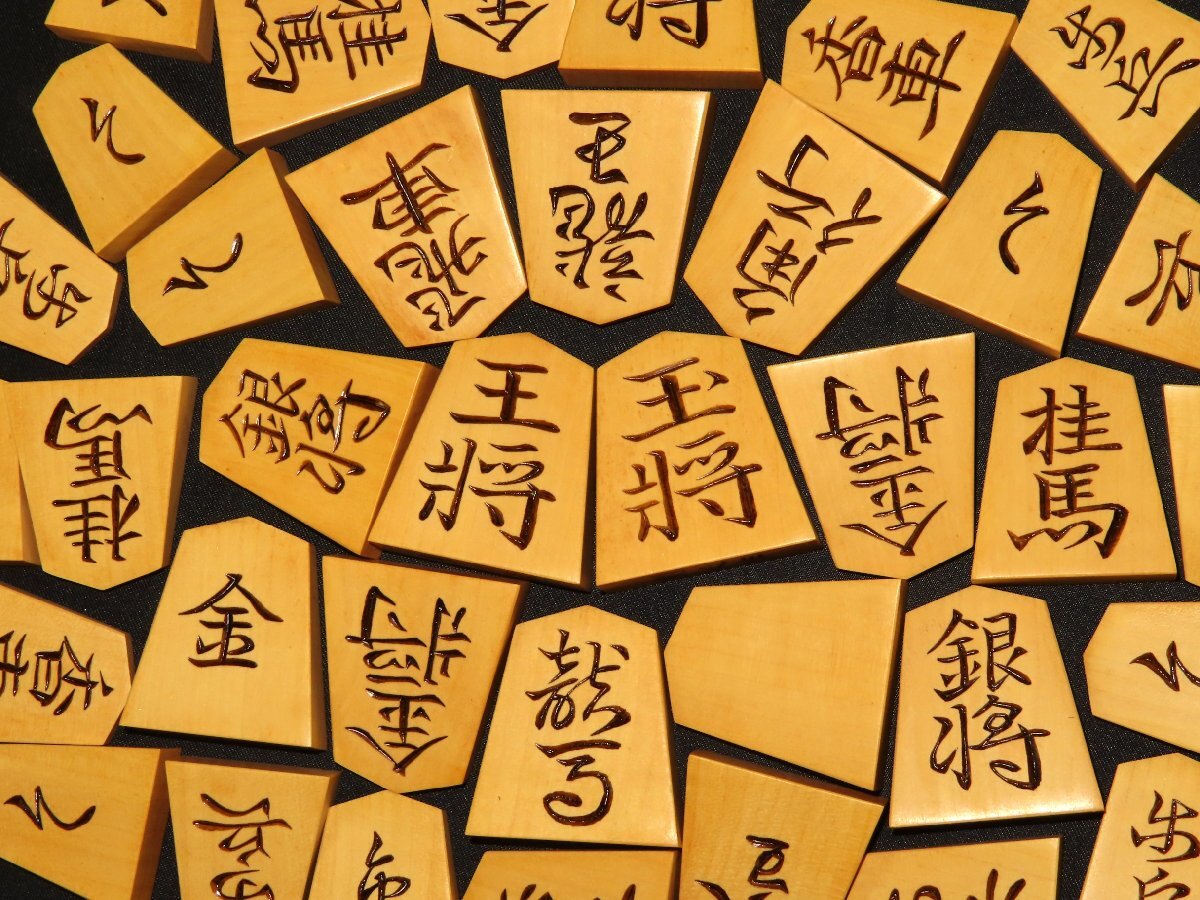 桂馬
香車
歩兵
飛車
龍王
角行
と
と
と
歩兵
桂馬
銀将
王将
玉将
金将
桂馬
香車
金
金将
龍馬
銀将
と
と